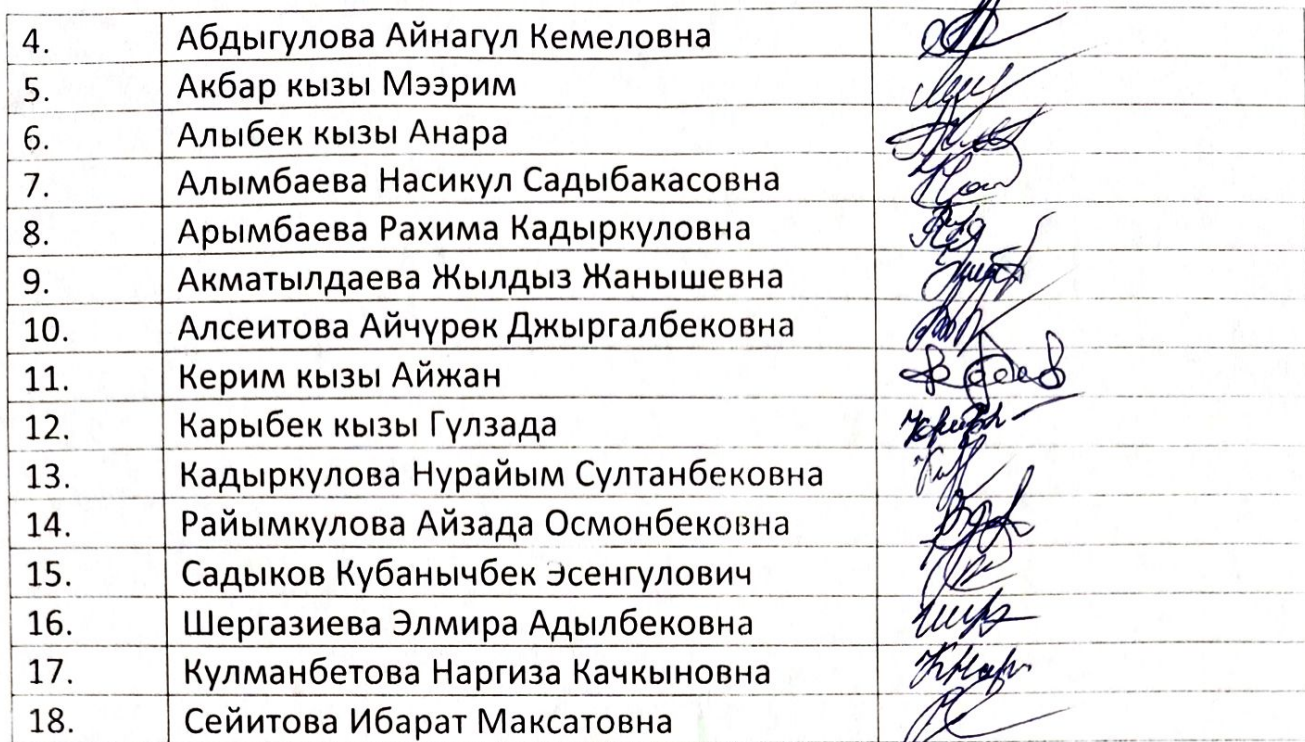 4. Абдыгулова Айнагүл Кемеловна
5. Акбар кызы Мээрим
6. Алыбек кызы Анара
7. Алымбаева Насикул Садыбакасовна
8. Арымбаева Рахима Кадыркуловна
9. Акматылдаева Жылдыз Жанышевна
10. Алсеитова Айчүрөк Джыргалбековна
11. Керим кызы Айжан
12. Карыбек кызы Гүлзада
13. Кадыркулова Нурайым Султанбековна
14. Райымкулова Айзада Осмонбековна
15. Садыков Кубанычбек Эсенгулович
16. Шергазиева Элмира Адылбековна
17. Кулманбетова Наргиза Качкыновна
18. Сейитова Ибарат Максатовна